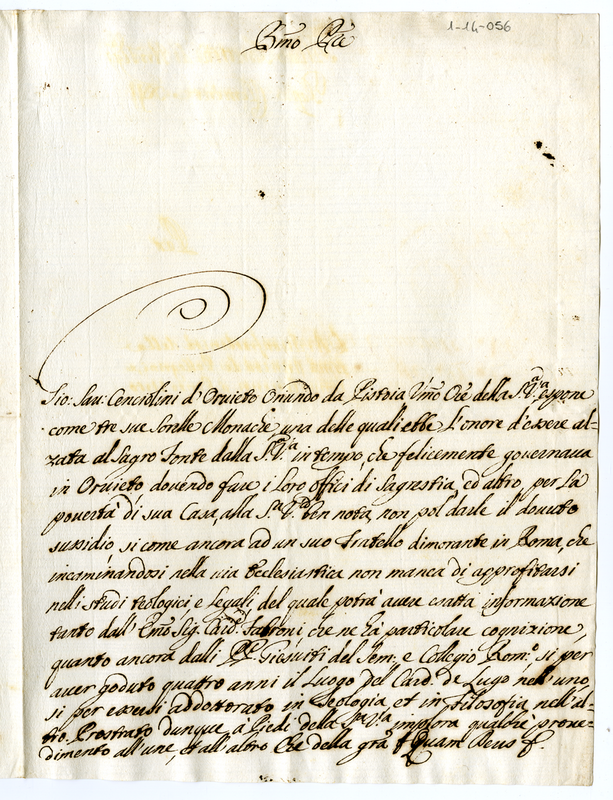 1-14-056
Bmo Pre
Gio: Sav: Cencrolini d'Orvieto Oriundo da Pistoia Vmo Ore della S.tà V.a espone
come tre sue sorelle Monache, una delle quali ebbe l'onore d'essere al-
zata al Sagro Fonte dalla S.tà V.a in tempo, che felicemente governava
in Orvieto dovendo fare i loro offici di Sagrestia, ed altro, per la
povertà di sua Casa, alla S.tà V.a ben nota, non pol darle il dovuto
sussidio si come ancora ad un suo Fratello dimorante in Roma, che
incaminandosi nella via Ecclesiastica non manca di approfitarsi
nelli studi teologici e legali, del quale potrà avere esatta informazione
tanto dall'Emo Sig. Card. Fabroni, che ne hà particolare cognizione,
quanto ancora dalli PP. Giesuiti del Sem: e Collegio Rom.o, si per
aver goduto quattro anni il luogo del Card. de Lugo nell'uno,
si per essersi addottorato in Teologia, et in Filosofia nell'al-
tro. Prostrato dunque à Piedi della S.tà V.a implora qualche prove-
dimento all'une, et all'altro Che della gra Quam Deus